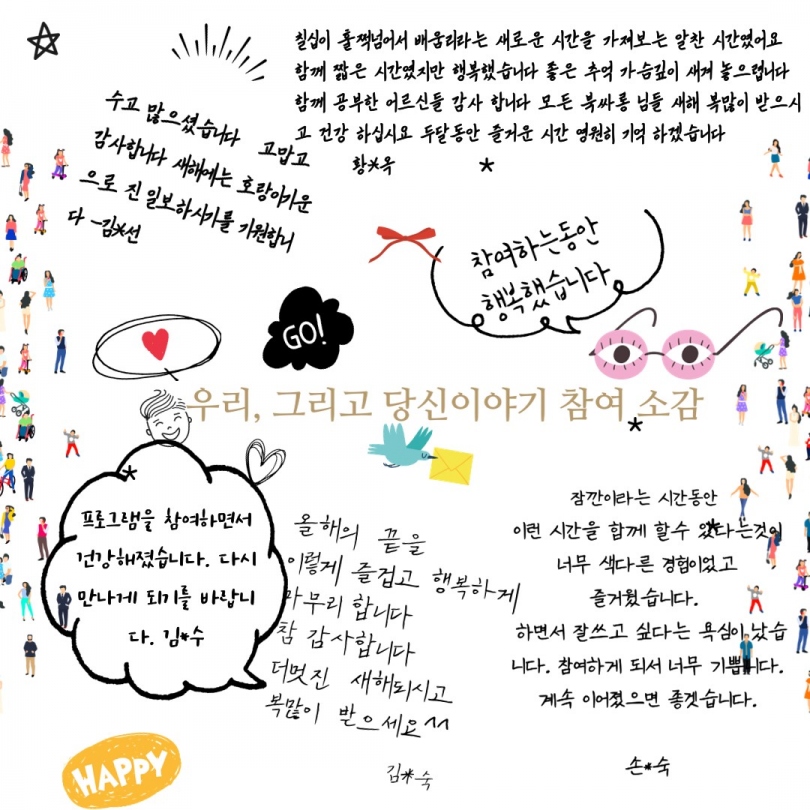 칠십이 훌쩍넘어서 배움리라는 새로운 시간을 가져보는 알찬 시간였어요
함께 짧은 시간였지만 행복했습니다 좋은 추억 가슴깊이 새겨 놓으렵니다
함께 공부한 어르신들 감사 합니다 모든 복싸롱 님들 새해 복많이 받으시
고 건강 하십시요 두달동안 즐거운 시간 영원히 기억 하겠습니다
황*옥
수고 많으셨습니다 고맙고
감사합니다 새해에는 호랑이기운
으로 진일보하시기를 기원합니
다 -김*선
참여하는동안
행복했습니다
GO!
우리, 그리고 당신이야기 참여 소감
프로그램을 참여하면서
건강해졌습니다. 다시
만나게 되기를 바랍니
다. 김*수
올해의 끝을
이렇게 즐겁고 행복하게
마무리 합니다
참 감사합니다
더멋진 새해되시고
복많이 받으세요^^
김*숙
잠깐이라는 시간동안
이런 시간을 함께 할수 있다는것이
너무 색다른 경험이었고
즐거웠습니다.
하면서 잘쓰고 싶다는 욕심이 났습
니다. 참여하게 되서 너무 기쁩니다.
계속 이어졌으면 좋겟습니다.
손*숙
HAPPY